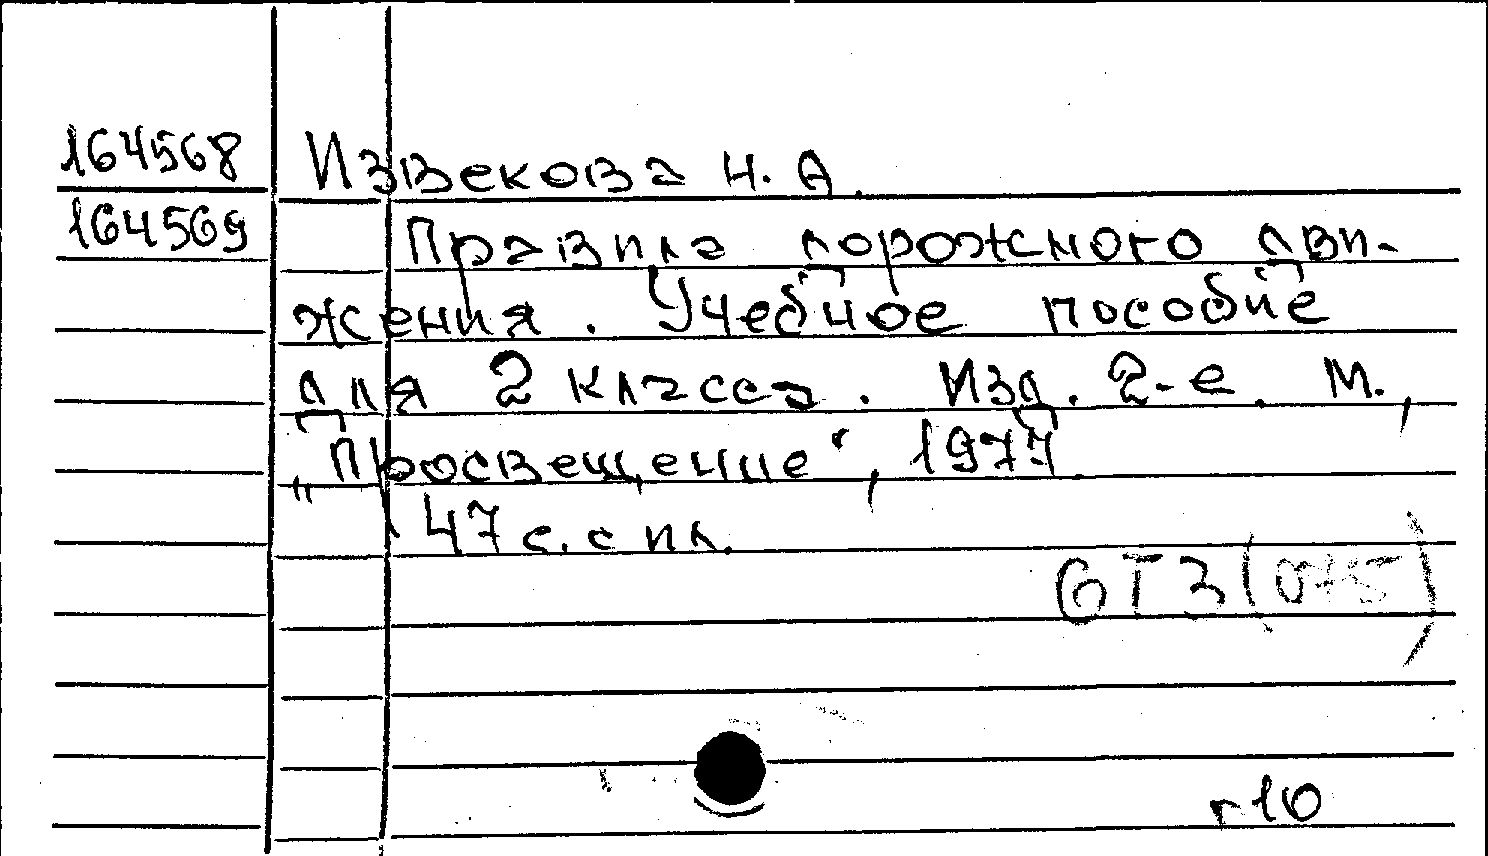 164568 Извекова Н. А.
164569 Правила дорожного дви-
жения. Учебное пособие
для 2 класса. Изд. 2-е. М.,
„Просвещение“, 1977.
47 с. с ил.
6Т3(075)
г10